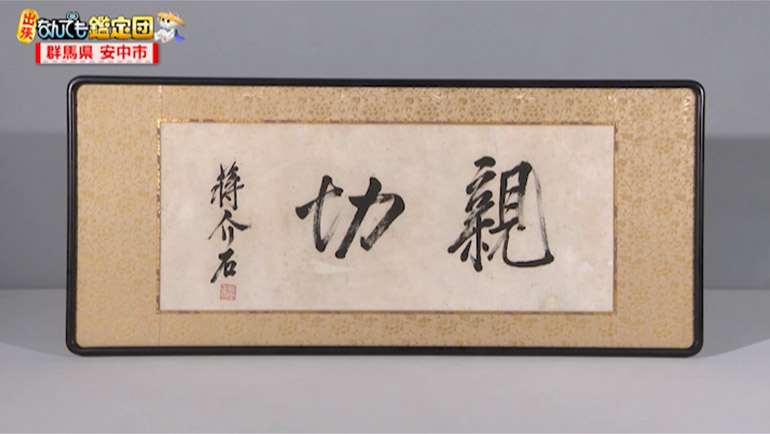 出張
なんでも鑑定団
群馬県 安中市
親切
蒋介石